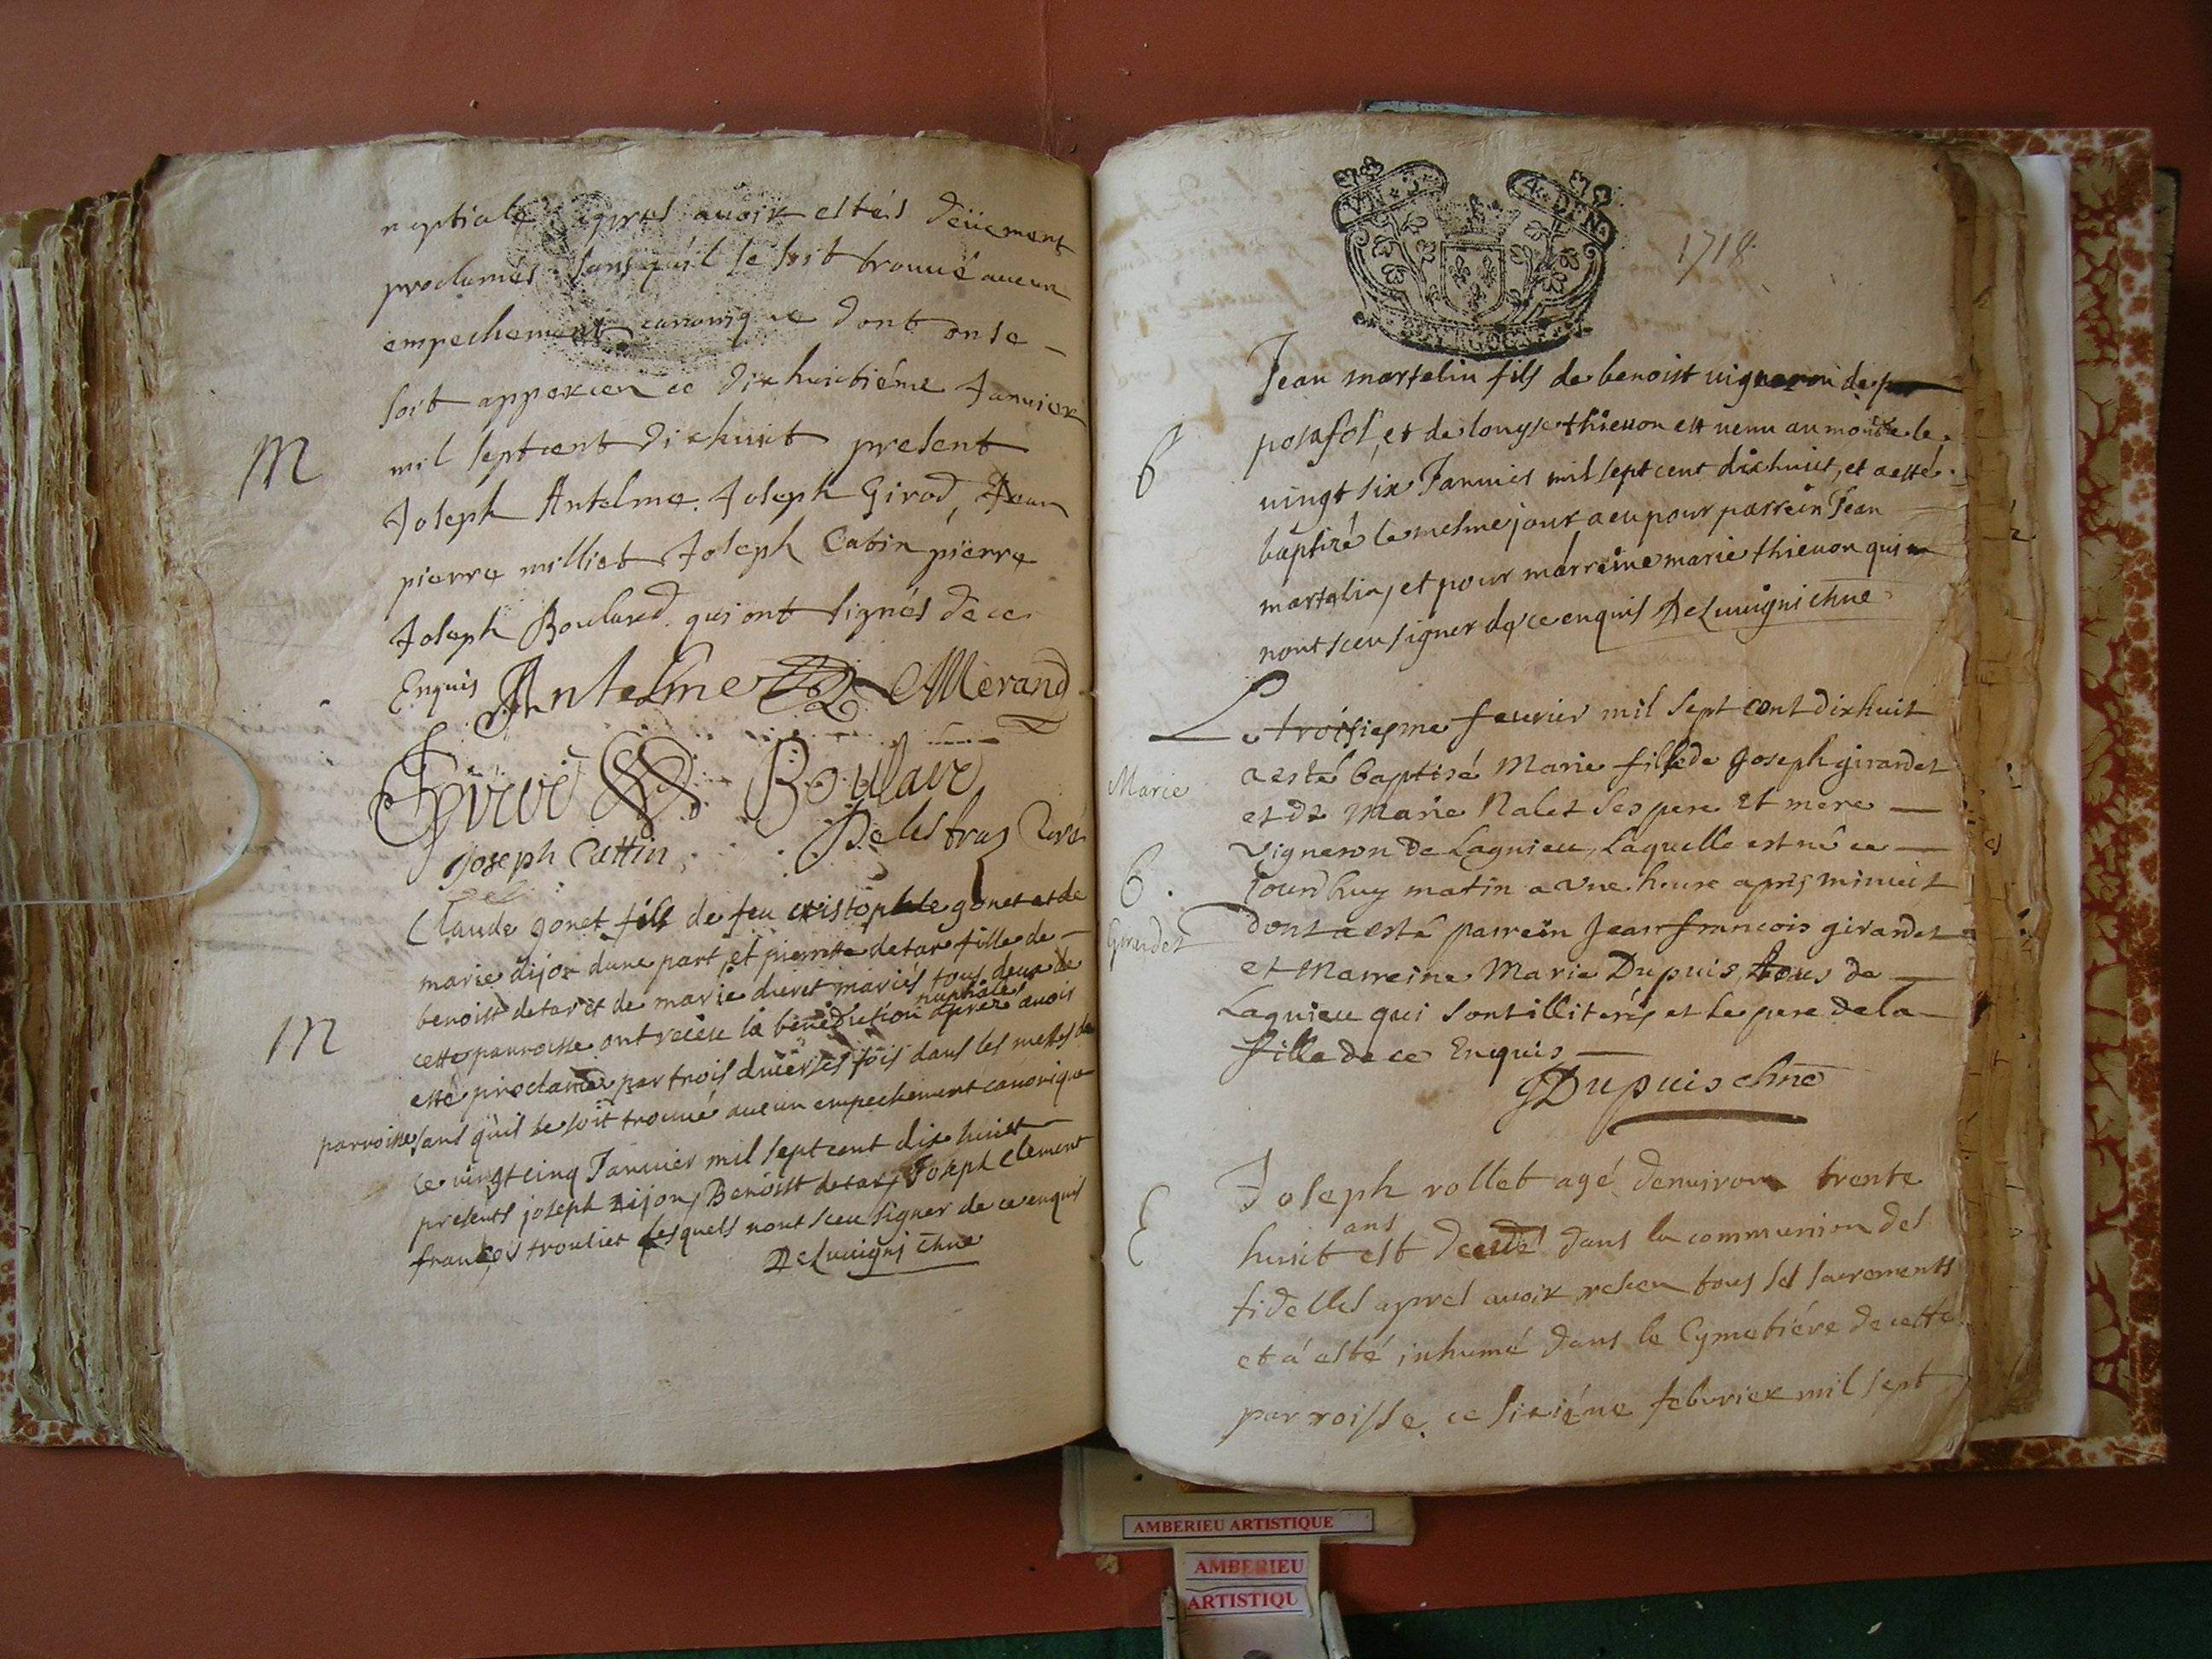 nuptiale apres avoir estés deüement
proclumés sans qu'il se soit trouvé aucun
empechement canonique dont on se
soit apperceu ce dixhuictiéme Janvier
M
mil sept cent dixhuict present
Joseph Antelme. Joseph Girod, Jean
pierre milliet Joseph Catin pierre
Joseph Boulard qui ont signés de ce
Enquis Antelme Merand
Girod Boulard
Joseph Cattin Curé
Claude gonet fils de feu cristophle gonet et de
marie dijon dune part et pierrette detar fille de
benoist detar et de marie mariés tous deux de
nuptiale
cette parroisse ont receu la benediction aprez avoir
M
esté proclamé par trois diverses fois dans les messes de
parroisse sans quil se soit trouvé aucun empechement canonique
ce vingt cinq Janvier mil sept cent dix huict
presents joseph dijon, Benoist detar, Joseph Clement
françois trouliet lesquels nont sceu signer de ce enquis
Deluvigni
1718
Jean martelin fils de benoist vigneron de
posafol, et de louyse thievon est venu au monde le
B
vingt six Janvier mil sept cent dixhuict, et a esté
baptizé le mesme jour a eu pour parrein Jean
martelin, et pour marreine marie thievon qui
nont sceu signer de ce enquis Deluvigni
Le troisiesme fevrier mil sept cent dixhuit
a esté baptisé Marie fille de Joseph girardet
Marie
et de Marie Ralet ses pere et mere
vigneron de Lagnieu, Laquelle est né ce
B.
jourdhuy matin a une heure apres minuit
Girardet
dont a esté parrein Jean francois girardet
et Marreine Marie Dupuis, tous de
Lagnieu qui sont illiterés et le pere de la
fille de ce Enquis
Dupuis
Joseph rollet agé denviron trente
ans
E
huict est decedé dans la communion des
fidelles apres avoir receu tous ses sacrements
et a esté inhumé dans le Cymetiére de cette
parroisse. ce sixiéme febvrier mil sept
AMBERIEU ARTISTIQUE
AMBERIEU
ARTISTIQU